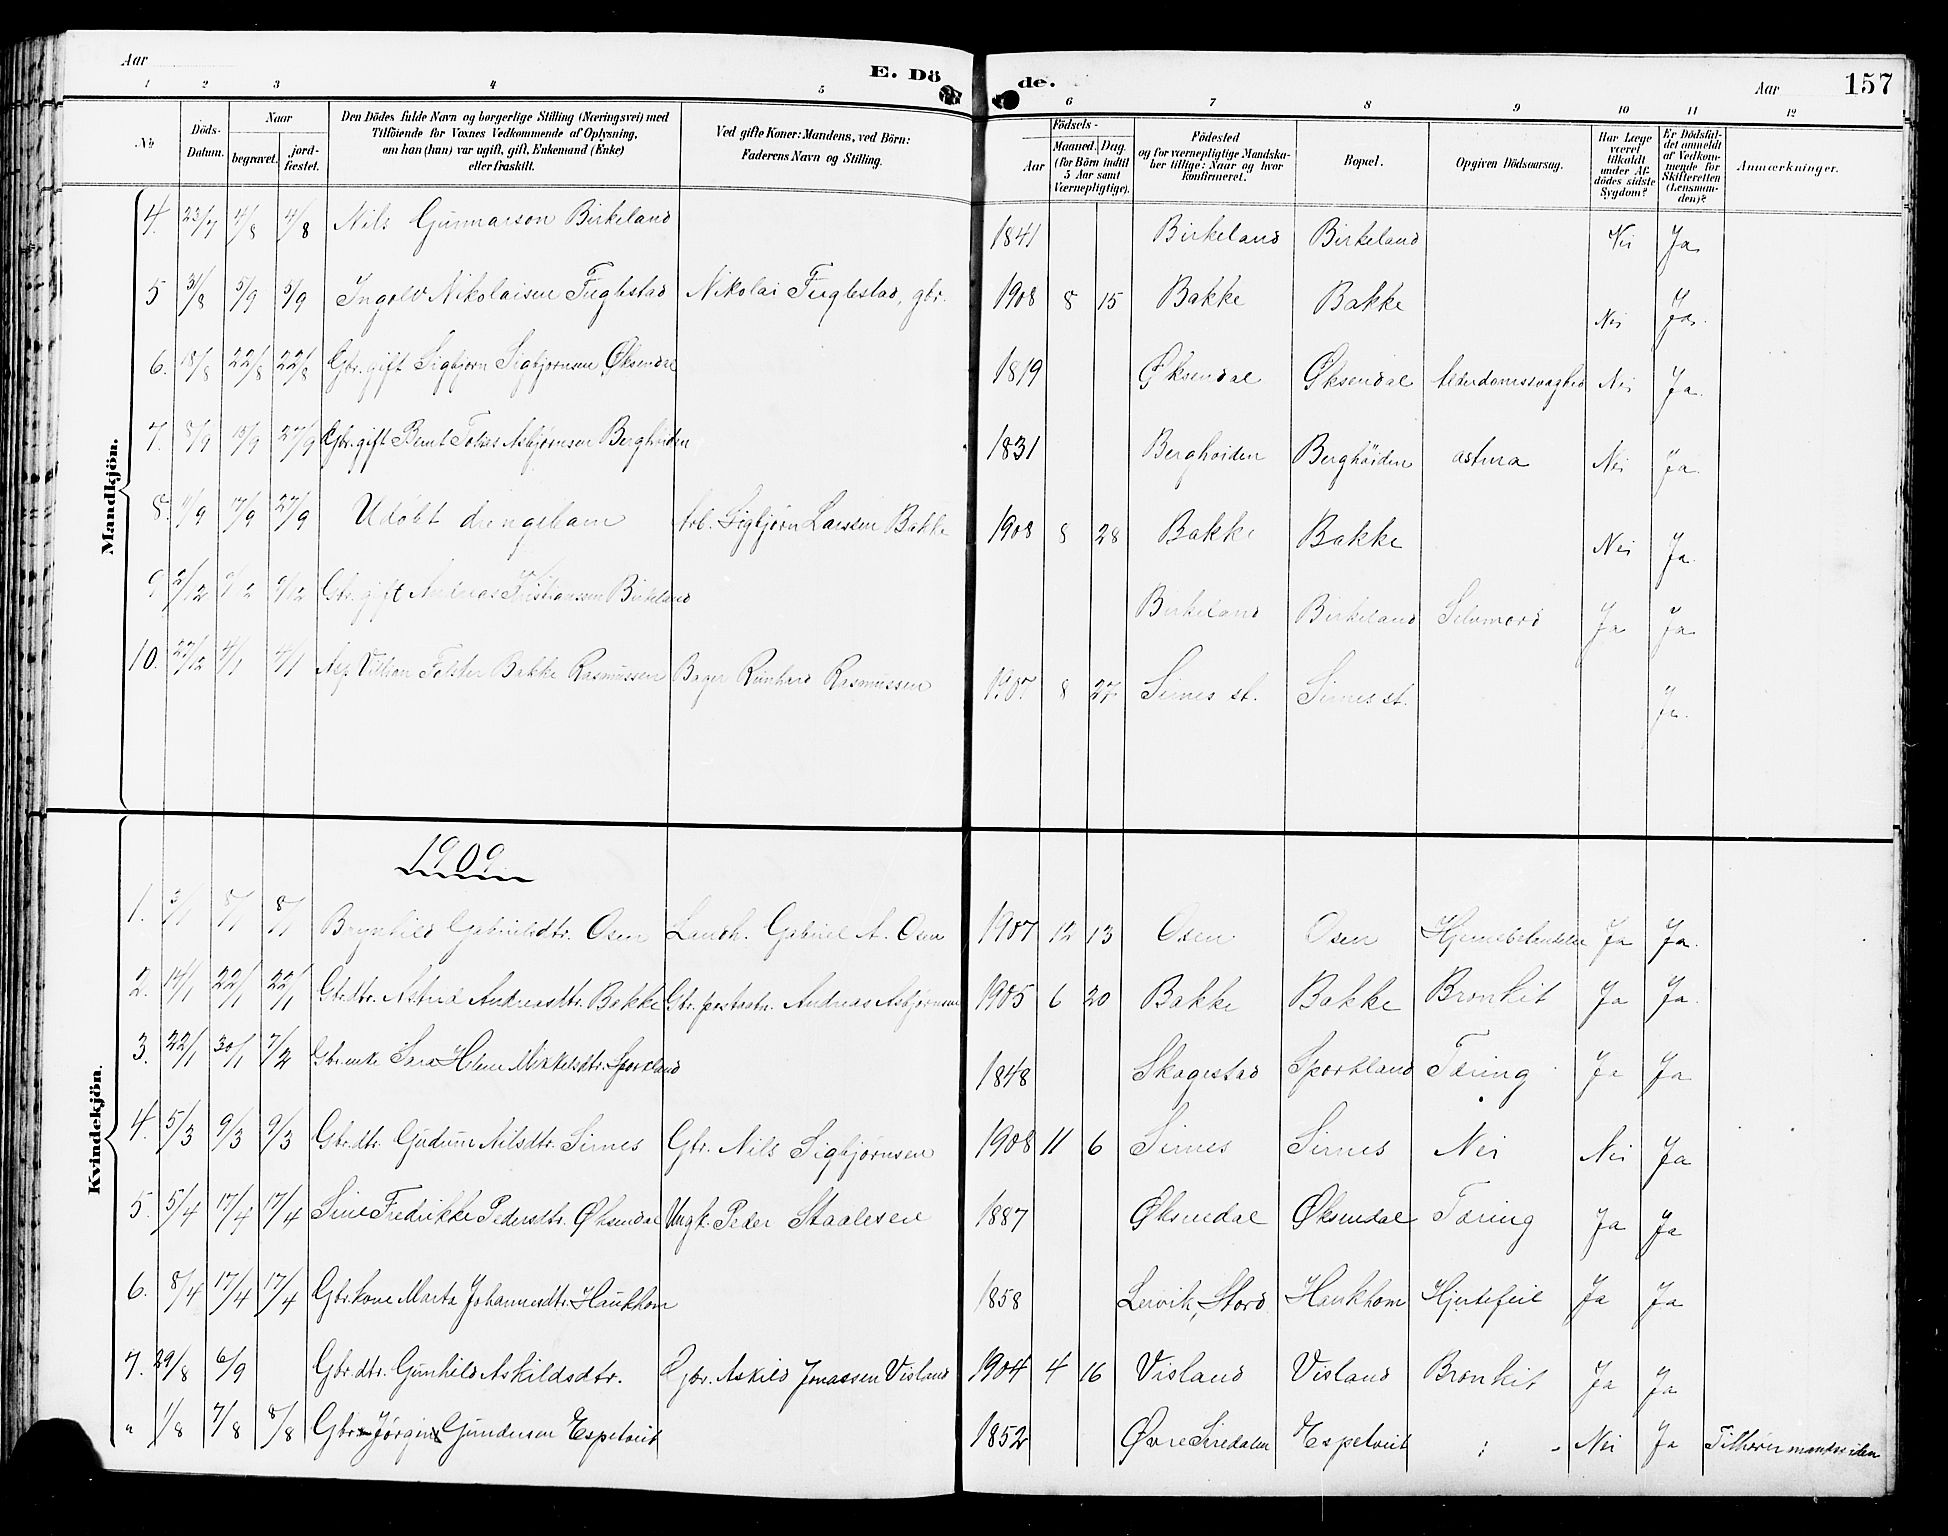 Aar
E. Döde.
Aar 157
1 2 3 4 5 6 7 8 9 10 11 12
No
Döds-Datum.
Naar
begravet.
jordfæstet.
Den Dödes fulde Navn og borgerlige Stilling (Næringsvei) med
Tilföiende for Voxnes Vedkommende af Oplysning,
om han (hun) var ugift, gift, Enkemand (Enke)
eller fraskilt.
Ved gifte Koner: Mandens, ved Börn:
Faderens Navn og Stilling.
Födsels-
Aar
Maaned. Dag.
(for Börn indtil
5 Aar samt
Værnepligtige).
Födested
og for værnepligtige Mandskaber tillige: Naar og hvor
konfirmeret.
Bopæl.
Opgiven Dödsaarsag.
Har Læge
været
tilkaldt
under Afdödes sidste
Sygdom?
Er Dödsfaldet anmeldt
af Vedkommende for
Skifteretten
(Lensmanden)?
Anmærkninger.
Mandkjön.
4. 23/7 4/8 4/8 Nils Gunnarson Birkeland 1841 Birkeland Birkeland Nei Ja
5 31/8 5/9 5/9 Ingolv Nikolaisen Fuglestad Nikolai Fuglestad, gbr. 1908 8 15 Bakke Bakke Nei Ja.
6. 18/8 22/8 22/8 Gbr. gift Sigbjørn Sigbjørnsen Øksendal 1819 Øksendal Øksendal Alderdomssvaghed Nei Ja.
7. 8/9 13/9 27/9 Gbr. gift Bernt Tobias Asbjørnsen Berghøiden 1831 Berghøiden Berghöiden astma Nei Ja
8. 11/9 17/9 27/9 Udøbt drengebarn Arb. Sigbjørn Larssen Bakke 1908 8 28 Bakke Bakke Nei Ja.
9 2/12 9/12 9/12 Gbr. gift Andreas Kristianssen Birkeland Birkeland Birkeland Selvmord Ja Ja
10. 27/12 4/1 4/1 Folster Bakke Rasmussen Bager Reinhard Rasmussen 1907 8 27 Sirnes st. Sirnes st. Ja.
Kvindekjön.
1909
1. 3/1 8/1 8/1 Brynhild Gabrielsdtr. Osen Landh. Gabriel A. Osen 1907 12 13 Osen Osen Ja Ja.
2. 14/1 22/1 22/1 Gbrdtr. Astrid Andreasdtr. Bakke Gbr. Andreas Asbjørnsen 1905 6 20 Bakke Bakke Bronkit Ja Ja.
3. 22/1 30/1 7/2 Gbr.enke Sara Helene Mikkelsdtr. Sporkland 1848 Skagestad Sporkland Tæring Ja Ja
4. 5/3 9/3 9/3 Gbr.dtr. Gudrun Nilsdtr. Sirnes Gbr. Nils Sigbjørnsen 1908 11 6 Sirnes Sirnes Nei Nei Ja
5. 5/4 17/4 17/4 Sine Fredrikke Pedersdtr. Øksendal Ungk. Peder Staalesen 1887 Øksendal Øksendal Tæring Ja Ja
6. 8/4 17/4 17/4 Gbr.kone Marta Johannesdtr. Haukhom 1858 Lervik, Stord Haukhom Hjertefeil Ja Ja
7. 29/8 6/9 Gbr.dtr. Gunhild Askildsdtr. Gbr. Askild Jonassen Visland 1904 4 16 Visland Visland Bronkit Ja Ja
" 1/8 7/8 8/8 Gbr. Jørgine Gundersen Espetveit 1852 Øvre Siredalen Espetveit : - Nei Ja Tilhører mandssiden